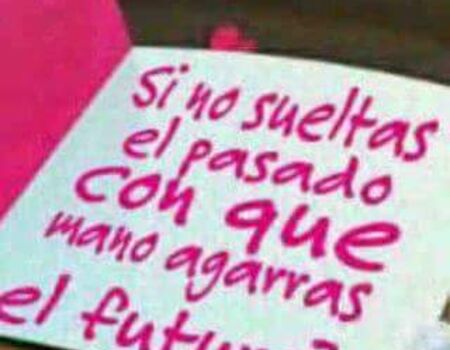 Si no sueltas
el pasado
con que
mano agarras
el futuro